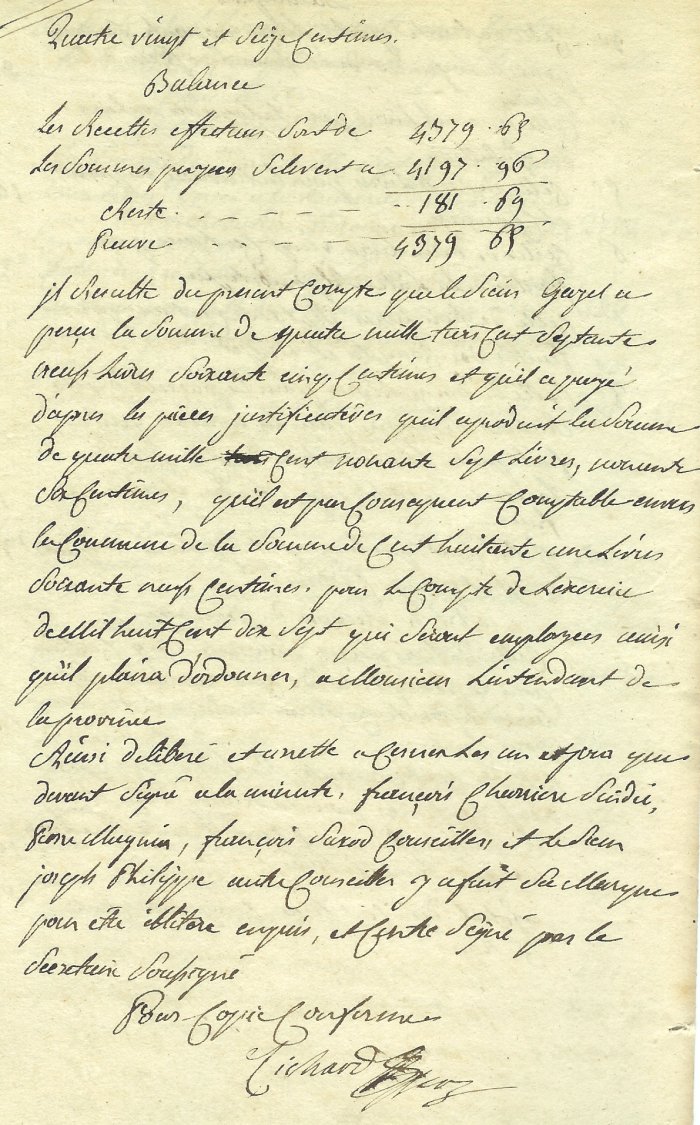 Quatre vingt et Seize Centimes.
Balance
Les Recettes effectuees Sont de 4379 . 65
Les Sommes payees Selevent a 4197 . 96
Reste . - - - - - 181 . 69
Preuve . - - - - 4379 65
jl Resulte du present Compte que le Sieur Gazel a
perçu la Somme de quatre mille trois Cent Septante
neuf Livres Soixante cinq Centimes et qu'il a payé
d'apres les pièces justificatives qu'il a produit la Somme
de quatre mille trois Cent nonante Sept Livres, nonante
Six Centimes, qu'il est par Consequent Comptable envers
la Commune de la Somme de Cent huitante une Livres
Soixante neuf Centimes. pour le Compte de Lexercice
de Mil huit Cent dix Sept qui Seront employees ainsi
qu'il plaira d'ordonner, a Monsieur Lintendant de
la province
Ainsi deliberé et arretté a Les an et jour que
devant Signé a la minute, françois Charriere Sindic,
Pierre Mugnier, françois Savod Conseillers et le Sieur
joseph Philippe autre Conseiller y a fait Sa Marque
pour etre illiteré enquis, et Contre Signé par le
Secretaire Soussigné
Pour Copie Conforme
Richard